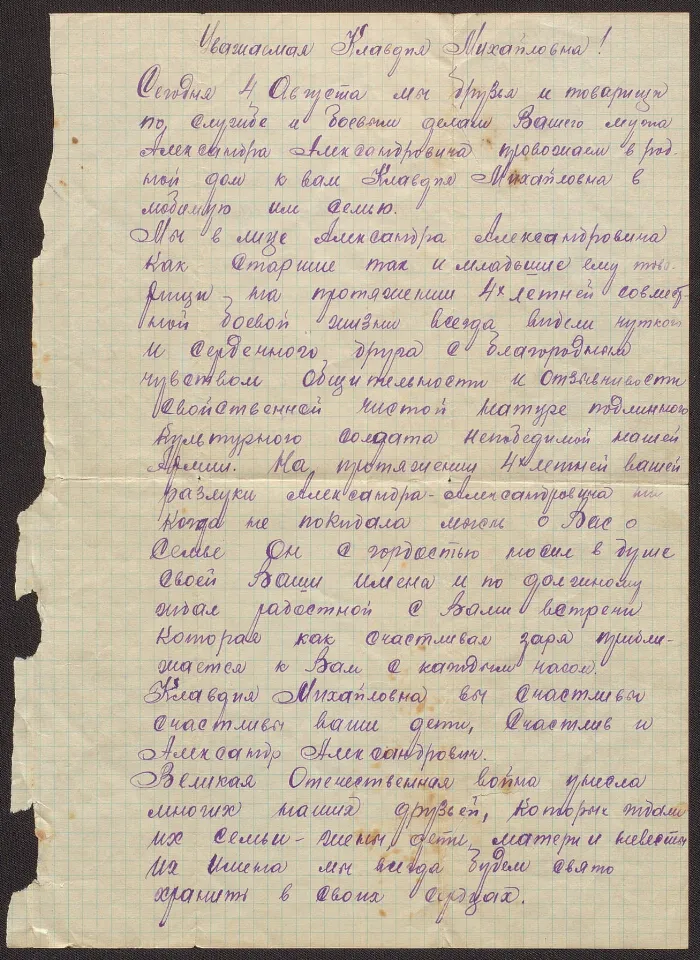 Уважаемая Клавдия Михайловна!
Сегодня 4 Августа мы друзья и товарищи
по службе и боевым делам Вашего мужа
Александра Александровича провожаем в род-
ной дом к вам Клавдия Михайловна в
любимую им семью.
Мы в лице Александра Александровича
как старшие так и младшие ему това-
рищи на протяжении 4х летней совмест
ной боевой жизни всегда видели чуткого
и сердечного друга с благородным
чувством общительности и отзывчивости
свойственной чистой натуре подлинного
культурного солдата непобедимой нашей
Армии. На протяжении 4х летней вашей
разлуки Александра-Александровича ни
когда не покидала мысль о Вас о
Семье Он с гордостью носил в душе
своей Ваши имена и по должному
ждал радостной с Вами встречи
которая как счастливая заря прибли-
жается к Вам с каждым часом.
Клавдия Михайловна вы счастливы
счастливы ваши дети, Счастлив и
Александр Александрович.
Великая Отечественная война унесла
многих наших друзей, которых ждали
их семьи - жены, дети, матери и невесты
Их имена мы всегда будем свято
хранить в своих сердцах.